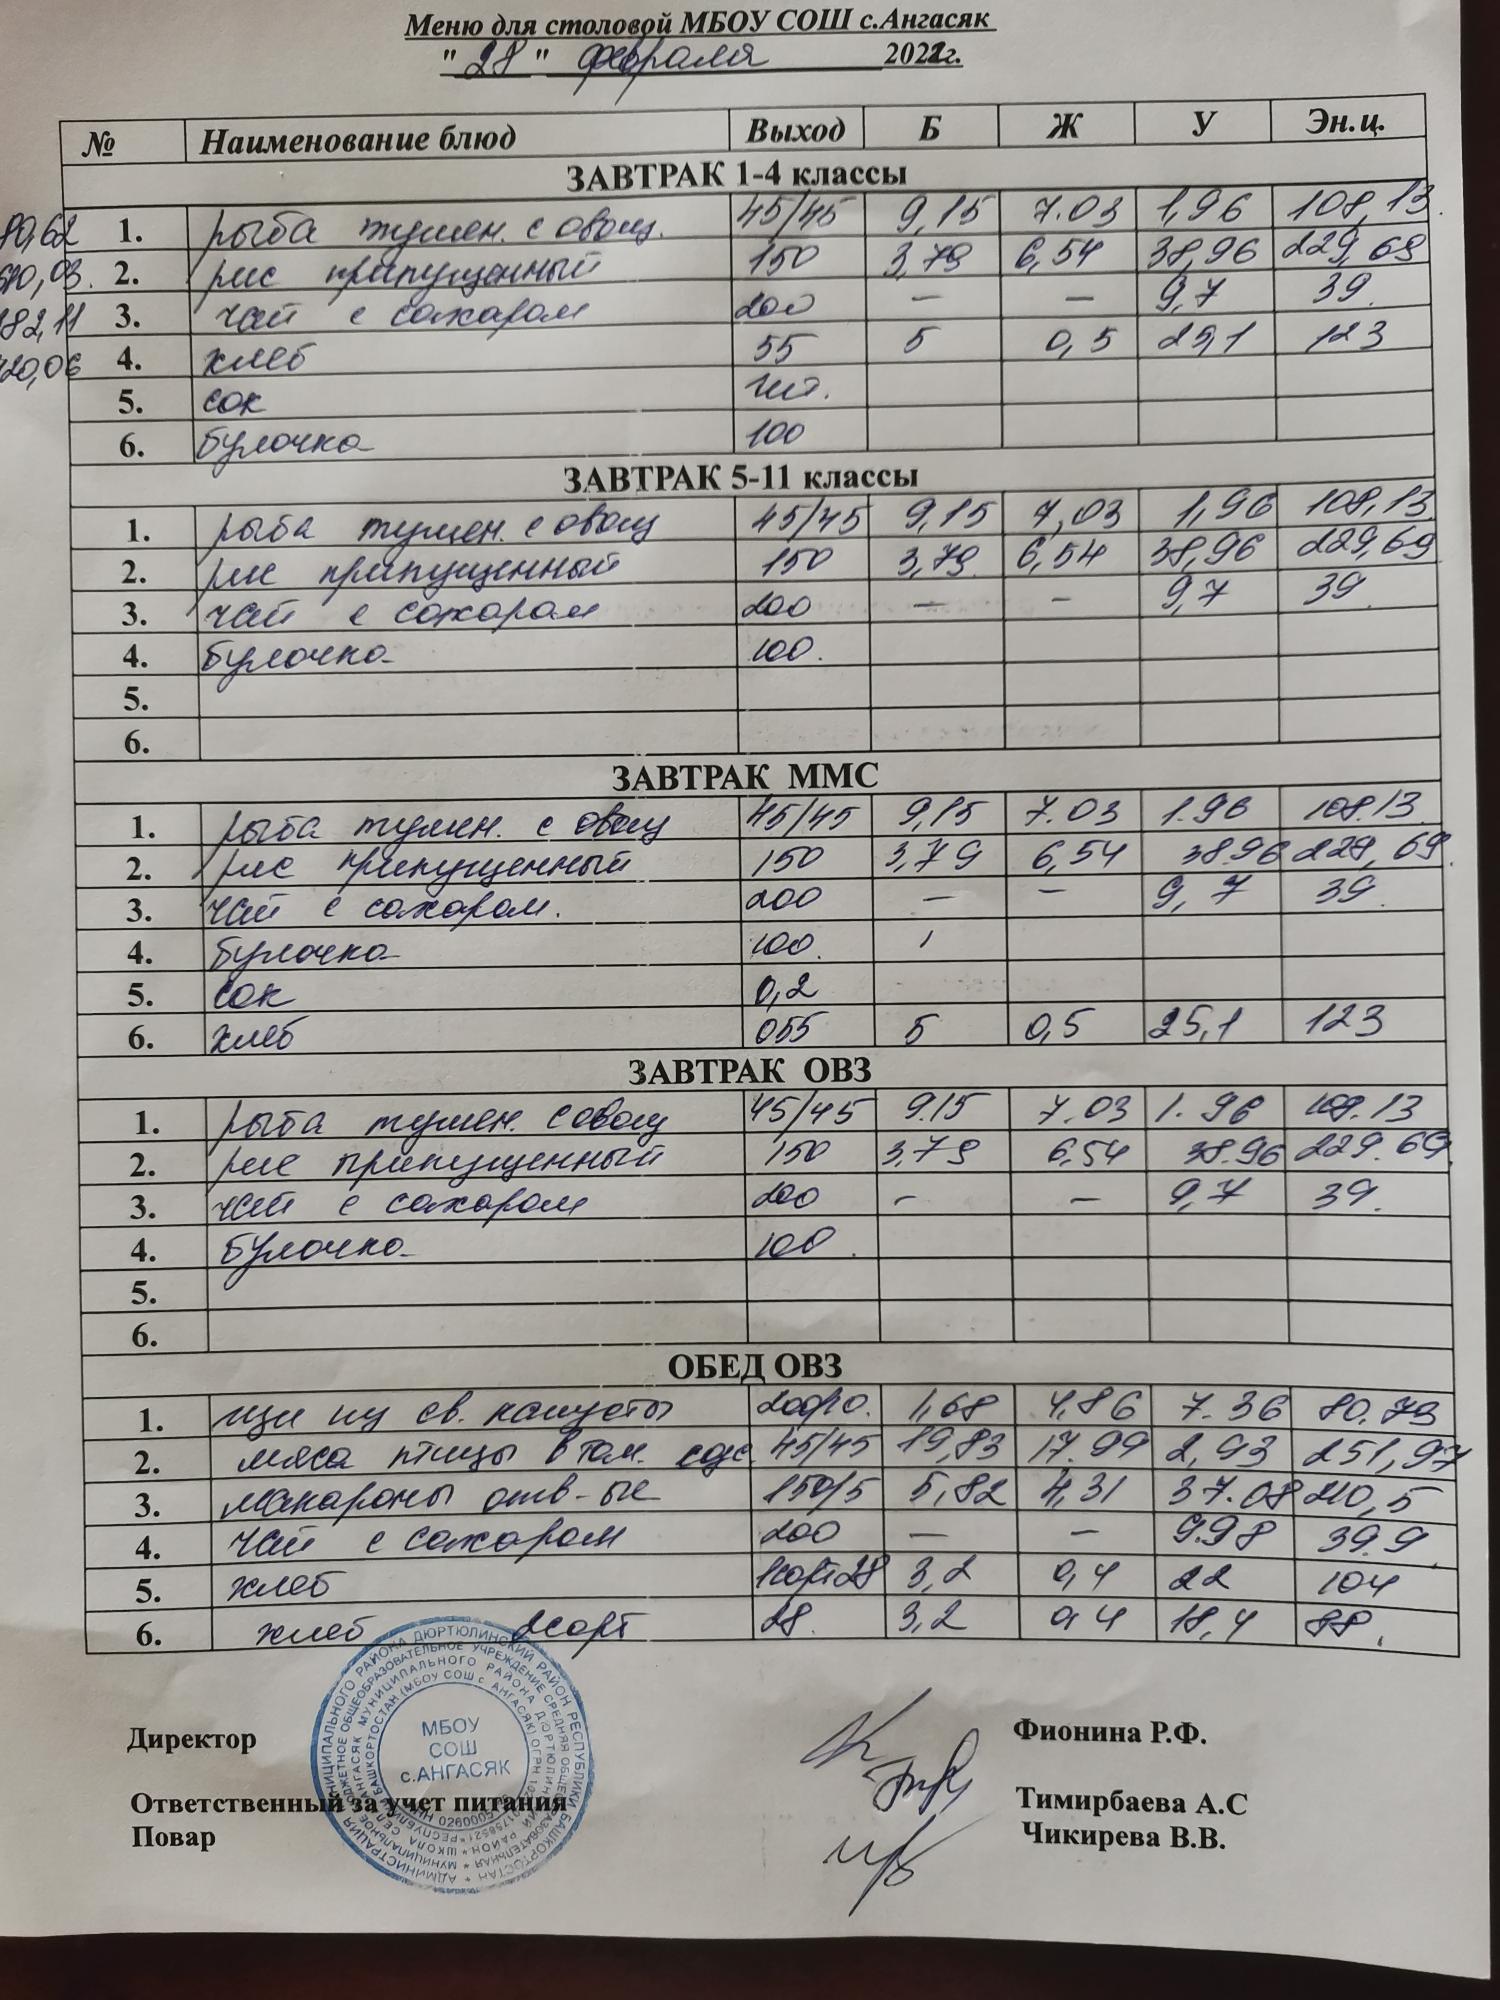 Меню для столовой МБОУ СОШ с.Ангасяк
"28" февраля 2022г.
№ Наименование блюд Выход Б Ж У Эн.ц.
ЗАВТРАК 1-4 классы
1. рыба тушен. с овощ. 45/45 9,15 7.03 1,96 108,13.
2. рис припущенный 150 3,79 6,54 38,96 229,69
3. чай с сахаром 200 — — 9,7 39.
4. хлеб 55 5 0,5 25,1 123
5. сок 1шт.
6. булочка 100
ЗАВТРАК 5-11 классы
1. рыба тушен. с овощ 45/45 9,15 7,03 1,96 108,13
2. рис припущенный 150 3,79 6,54 38,96 229,69
3. чай с сахаром 200 — — 9,7 39.
4. булочка 100.
5.
6.
ЗАВТРАК ММС
1. рыба тушен. с овощ 45/45 9,15 7.03 1.96 108.13.
2. рис припущенный 150 3,79 6,54 38.96 229,69.
3. чай с сахаром. 200 — — 9,7 39.
4. булочка 100.
5. сок 0,2
6. хлеб 055 5 0,5 25,1 123
ЗАВТРАК ОВЗ
1. рыба тушен. с овощ 45/45 9.15 7.03 1.96 108.13
2. рис припущенный 150 3,79 6,54 38.96 229.69.
3. чай с сахаром 200 — — 9,7 39.
4. булочка 100.
5.
6.
ОБЕД ОВЗ
1. щи из св. капусты 200/10. 1,68 4,86 7.36 80.79
2. мяса птицы в том. соус. 45/45 19,83 17.99 2,93 251,97
3. макароны отв-ые 150/5 5,82 4,31 37.08 210,5
4. чай с сахаром 200 — — 9.98 39.9.
5. хлеб 1сорт28 3,2 0,4 22 104
6. хлеб 2сорт 28. 3,2 0,4 18,4 88.
МБОУ
СОШ
с.АНГАСЯК
Директор Фионина Р.Ф.
Ответственный за учет питания Тимирбаева А.С
Повар Чикирева В.В.